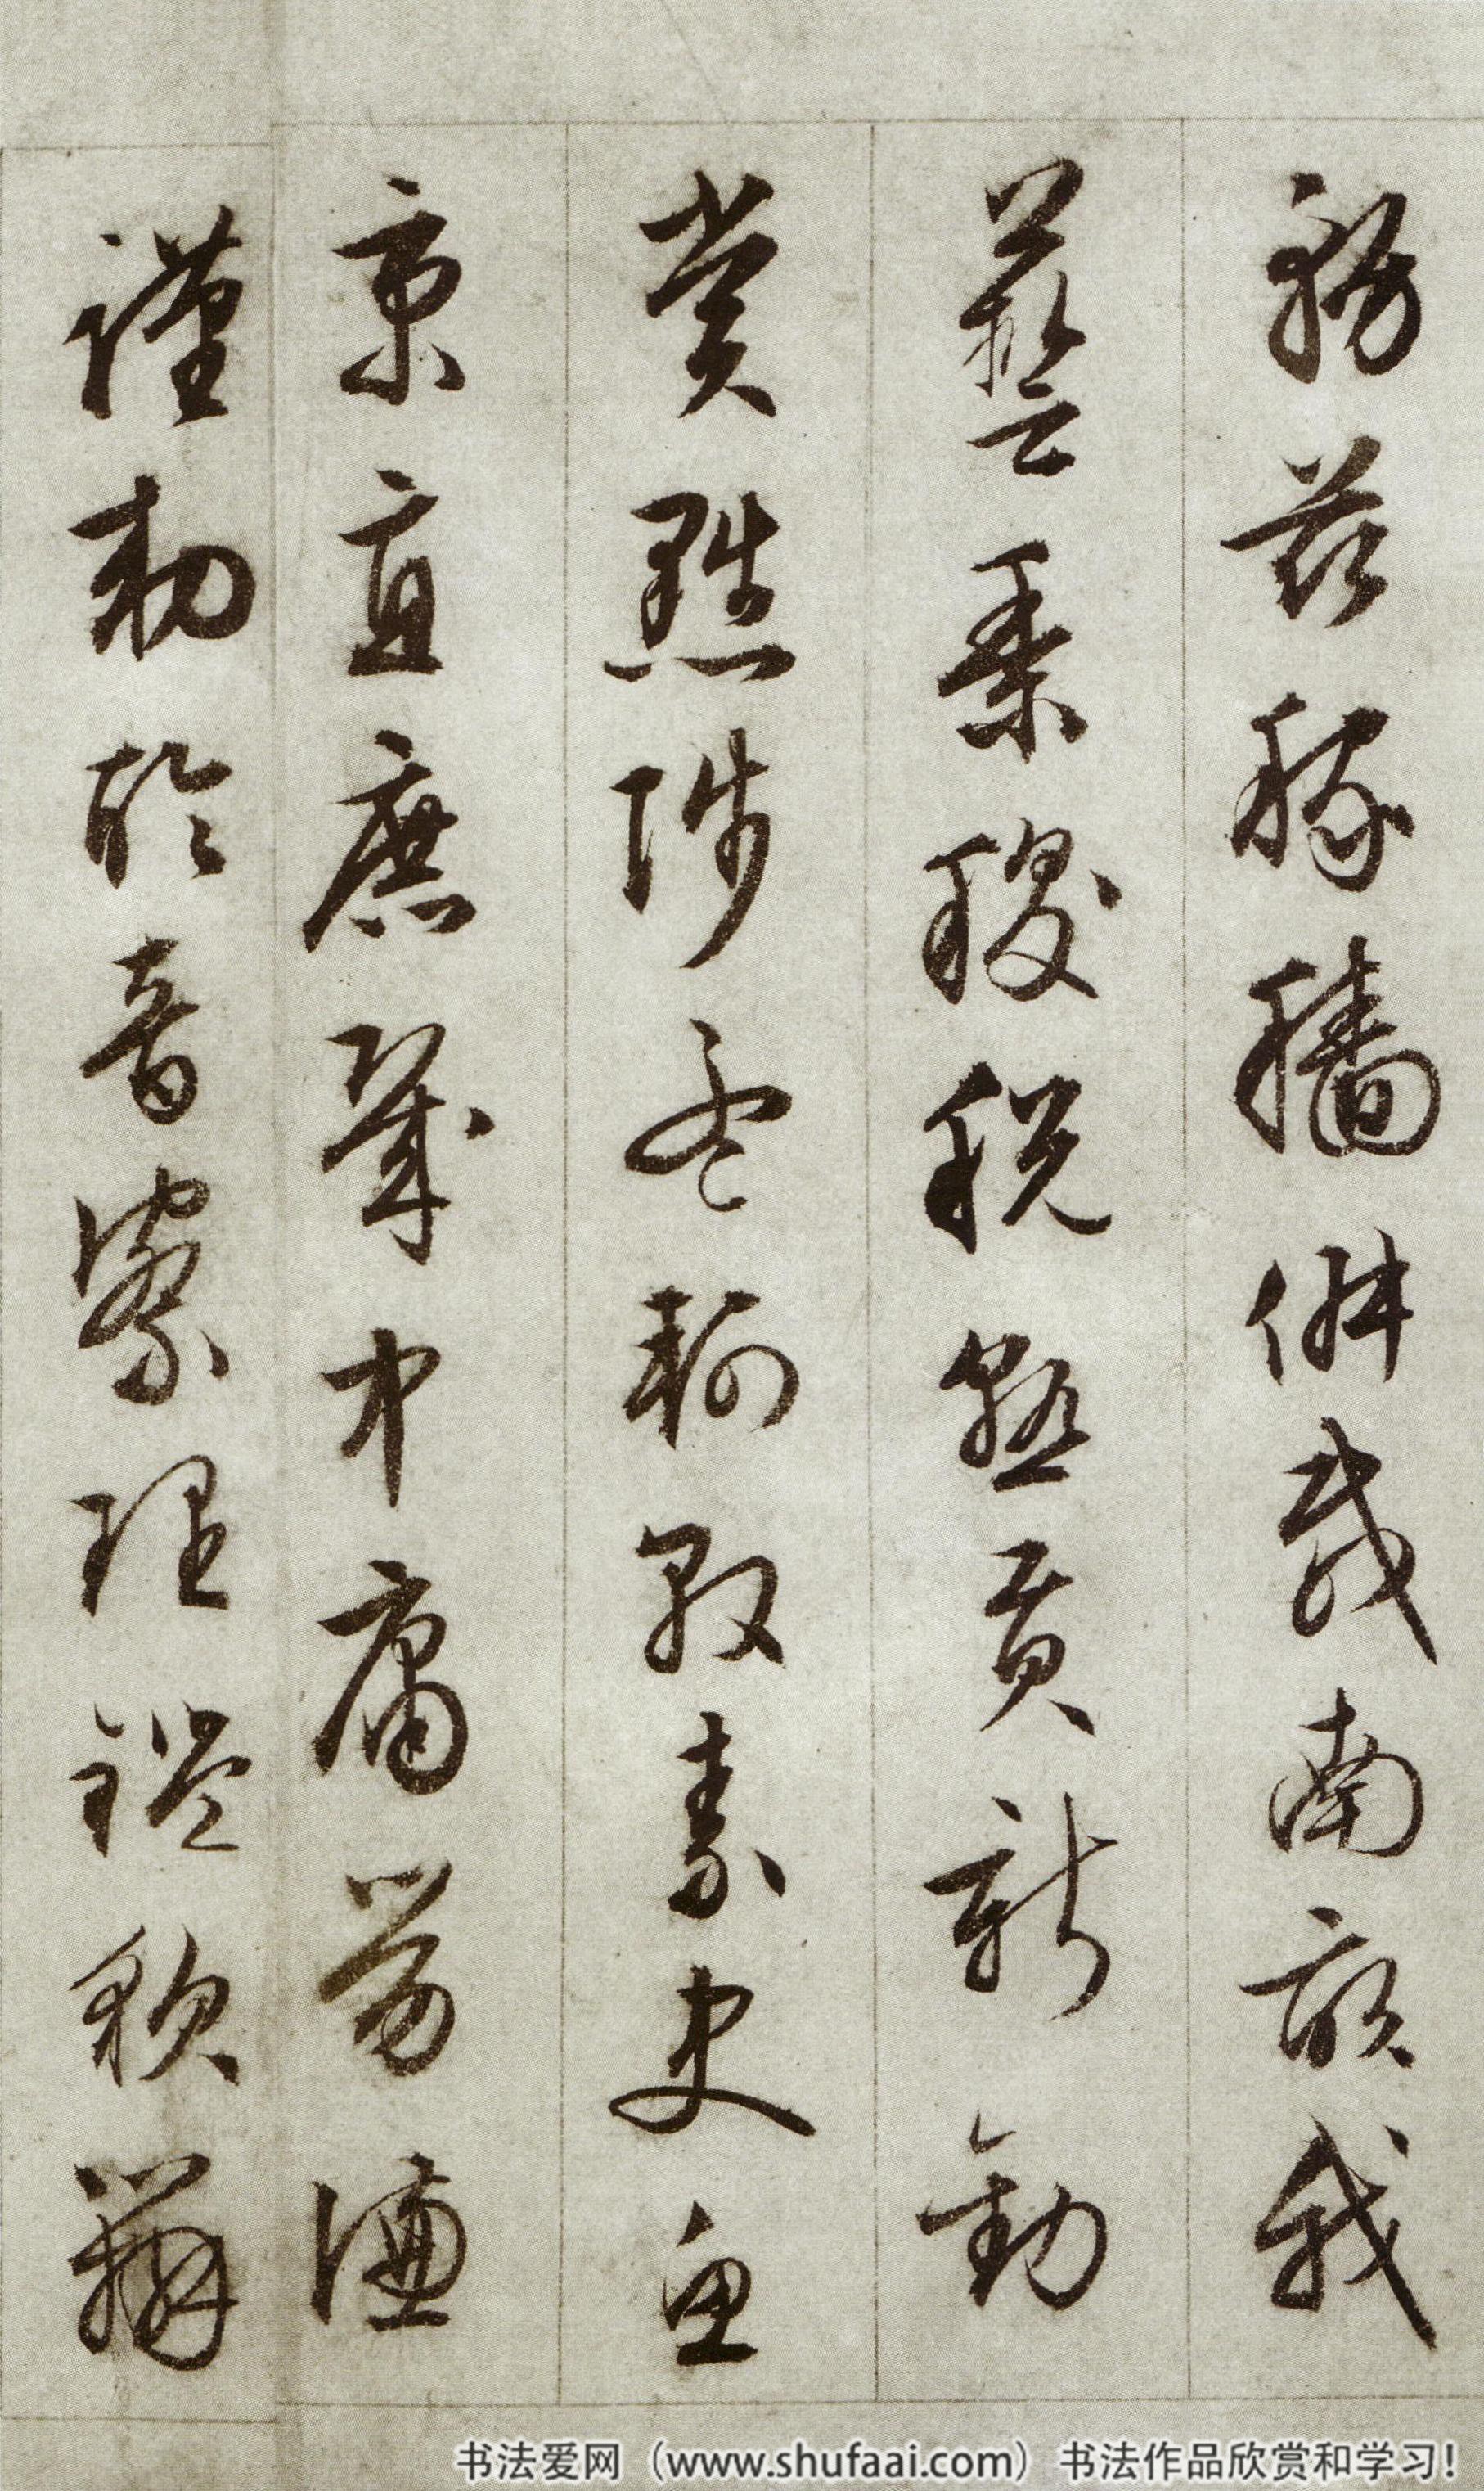 務茲稼穡俶載南畝我
藝黍稷稅熟貢新勸
賞黜陟孟軻敦素史魚
秉直庶幾中庸勞謙
謹勑聆音察理鑑貌辨
书法爱网（www.shufaai.com）书法作品欣赏和学习！